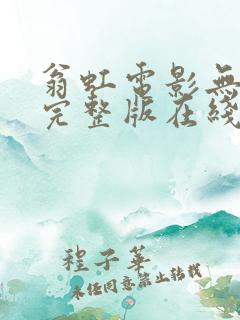 翁虹電影無
完整版在綫
程子華
未任同意禁止转载